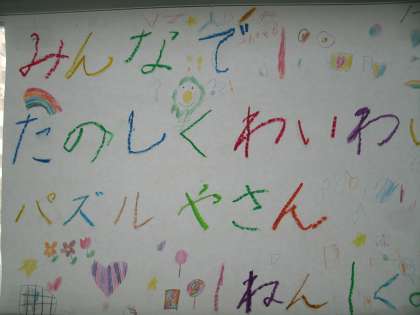 みんなで
たのしくわいわ
パズルやさん
1ねん1く